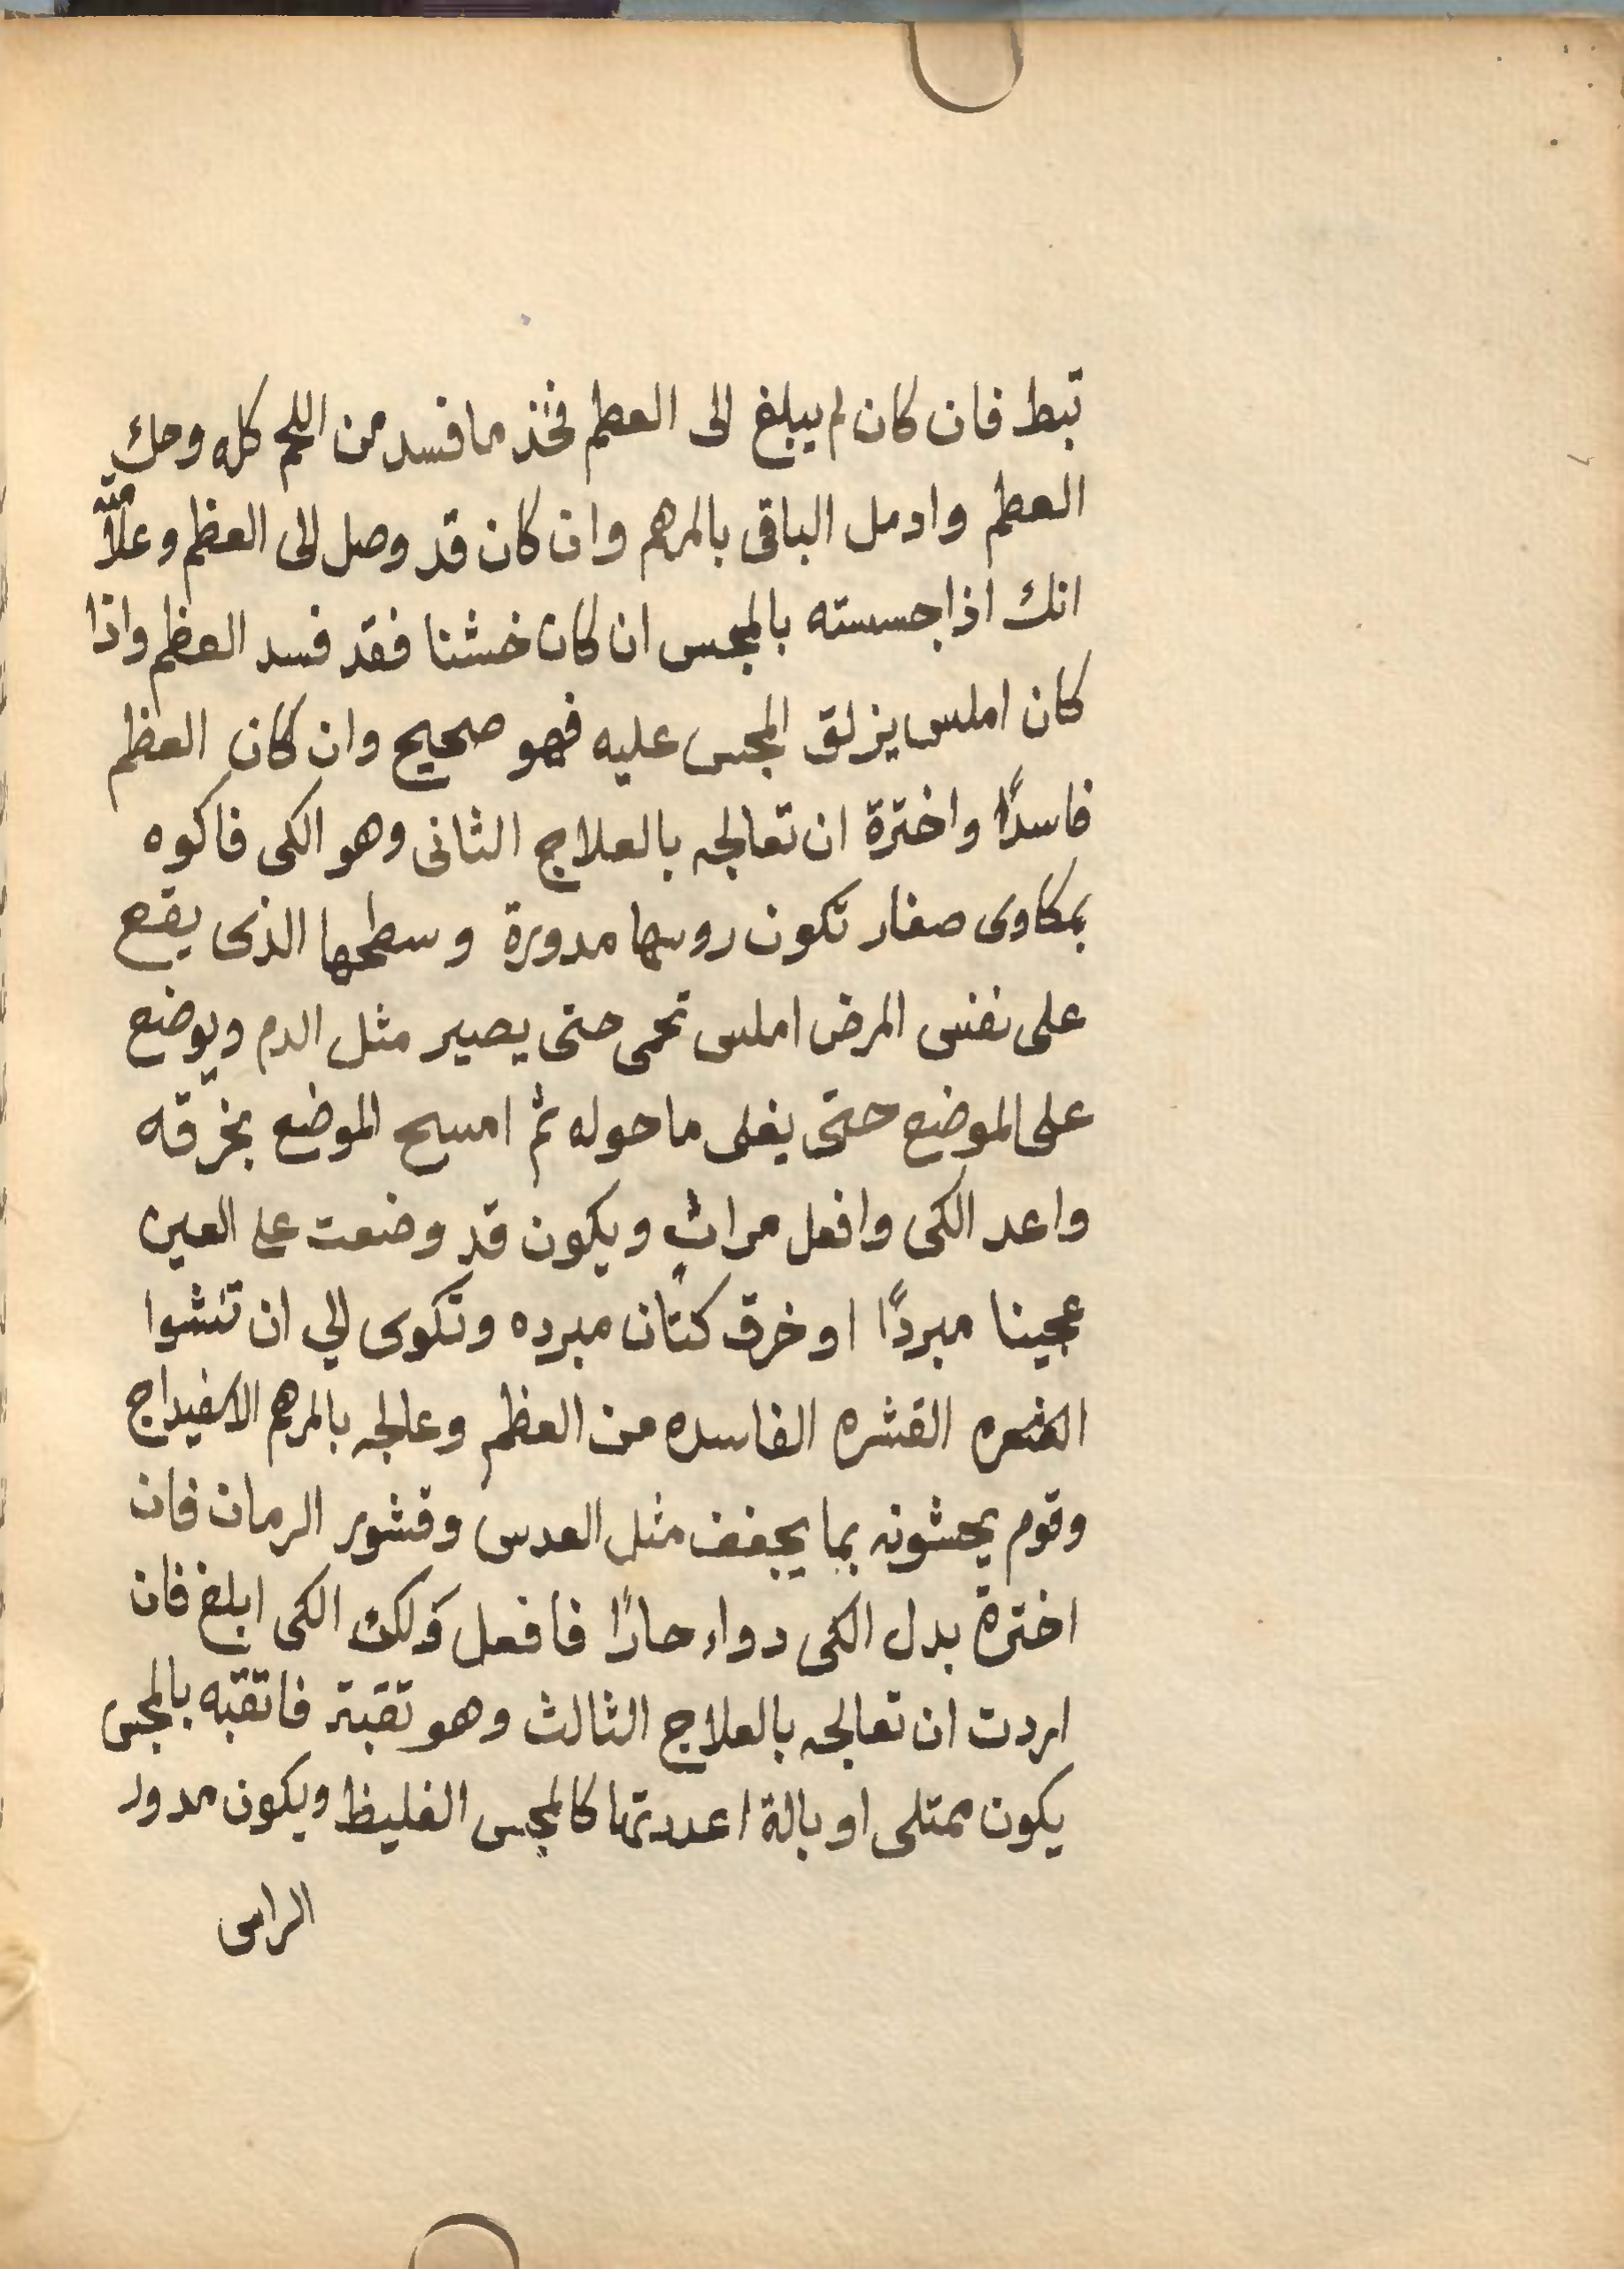 تبط فان كان لم يبلغ الى العظم فخذ ما فسد من اللحم كله وحك
العظم وادمل الباقى بالمرهم وان كان قد وصل الى العظم وعلامته
انك اذا جسسته بالمجس ان كان خشنا فقد فسد العظم واذا
كان املس يزلق المجس عليه فهو صحيح وان كان العظم
فاسدًا واخترة ان تعالجه بالعلاج الثانى وهو الكى فاكوه
بمكاوى صغار تكون روسها مدورة وسطحها الذى يقع
على نفس المرض املس تحمى حتى يصير مثل الدم ويوضع
على الموضع حتى يغلى ما حوله ثم امسح الموضع بخرقه
واعد الكى وافعل مراتٍ ويكون قد وضعت على العين
عجينا مبردًا او خرق كتان مبرده وتكوى الي ان تنشوا
القشره الفاسده من العظم وعالجه بالمرهم الاسفيداج
وقوم يحشونه بما يجفف مثل العدس وقشور الرمان فان
اخترة بدل الكى دواء حارًا فافعل ولكن الكى ابلغ فان
اردت ان تعالجه بالعلاج الثالث وهو تقبته فاتقبه بالمجس
يكون ممتلى او بالة اعددتها كالمجس الغليظ ويكون مدور
الراس